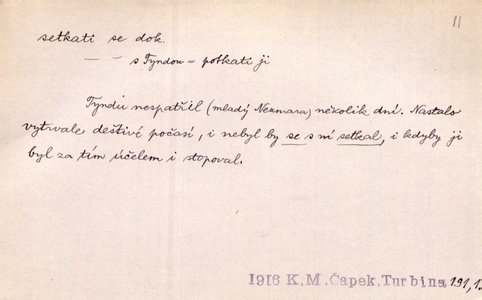 11
setkati se dok.
— " — s Tyndou = potkati ji
Tyndu nespatřil (mladý Nezmara) několik dní. Nastalo
vytrvale deštivé počasí, i nebyl by se s ní setkal, i kdyby ji
byl za tím účelem i stopoval.
1916 K.M. Čapek, Turbina 191,1